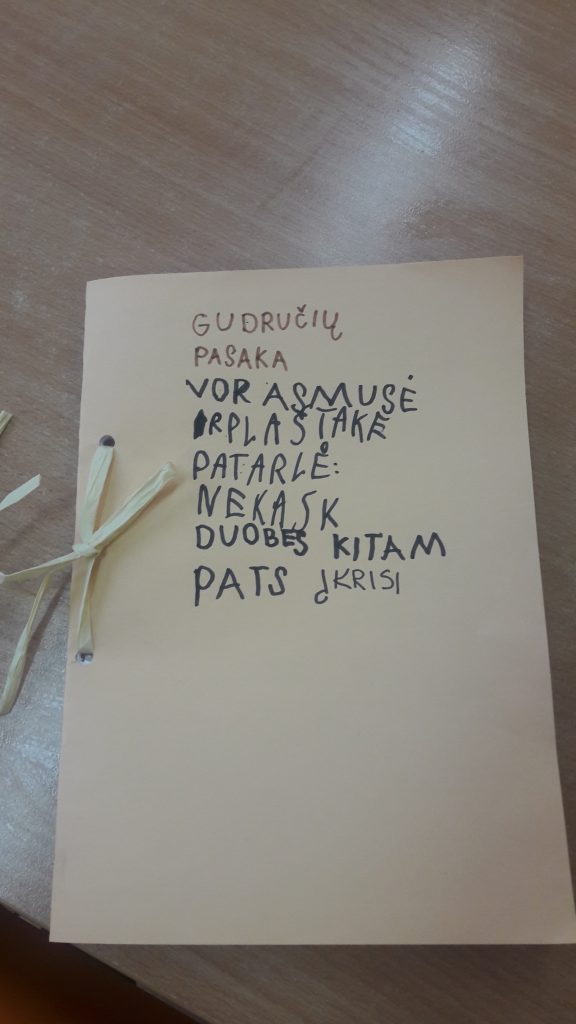 GUDRUČIŲ
PASAKA
VORASMUSĖ
IRPLAŠTAKĖ
PATARLĖ:
NEKASK
DUOBĖS KITAM
PATS ĮKRISI